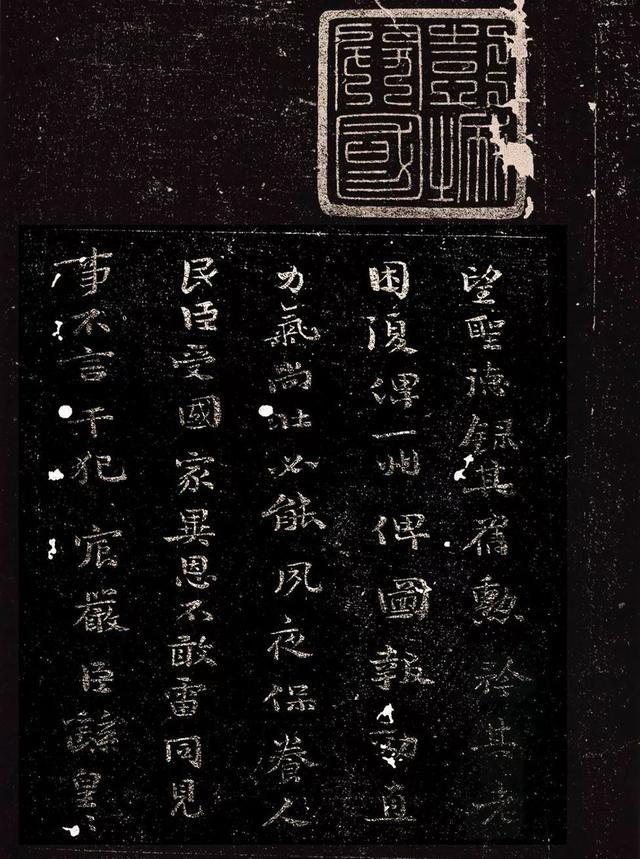 彭城
國
望聖德錄其舊勳矜其老
困復俾一州俾圖報効直
力氣尚壯必能夙夜保養人
民臣受國家異恩不敢雷同見
事不言干犯宸嚴臣繇皇〻